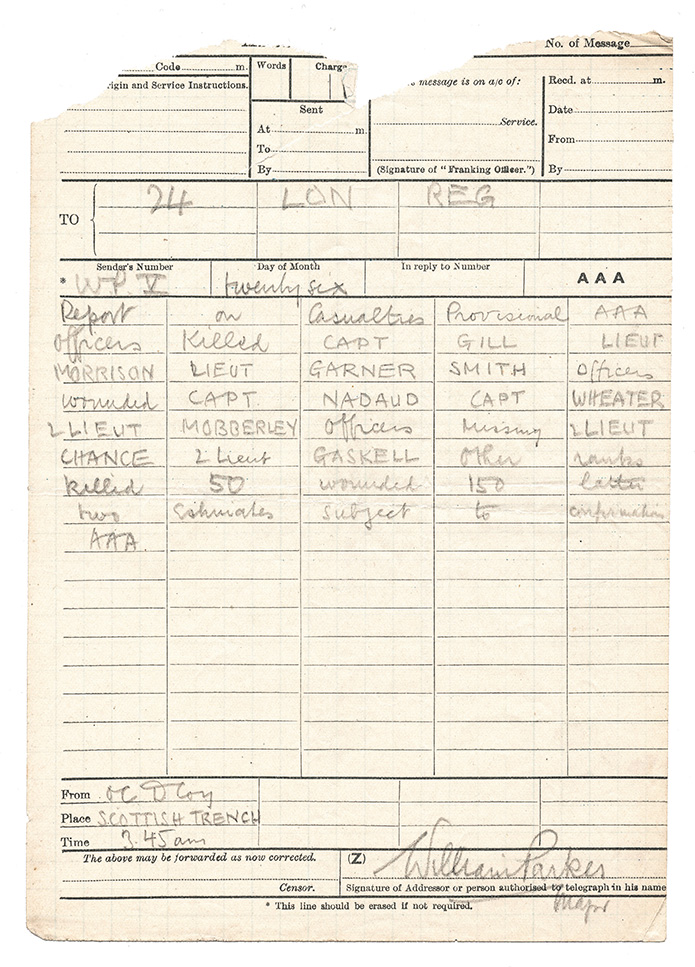 No. of Message
Code m. Words Charge
Origin and Service Instructions. message is on a/c of: Recd. at m.
Sent Date
At m. Service. From
To
By (Signature of "Franking Officer.") By
TO 24 LON REG
Sender's Number Day of Month In reply to Number AAA
* W.P. V twenty six
Report on Casualties Provisional AAA
Officers Killed CAPT GILL LIEUT
MORRISON LIEUT GARNER SMITH Officers
wounded CAPT. NADAUD CAPT WHEATER
2LIEUT MOBBERLEY Officers Missing 2LIEUT
CHANCE 2 Lieut GASKELL Other ranks
killed 50 wounded 150 latter
two Estimates subject to confirmation
AAA
From OC D Coy
Place SCOTTISH TRENCH
Time 3.45am
The above may be forwarded as now corrected. (Z) William Parker
Censor. Signature of Addressor or person authorised to telegraph in his name
Major
* This line should be erased if not required.